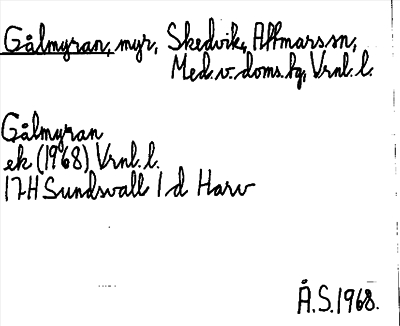 Gålmyran, myr, Skedvik, Attmars sn,
Med. v. doms. hg, Vrnl. l.
Gålmyran
ek (1968) Vrnl. l.
17H Sundsvall 1 d Harv
Å.S. 1968.